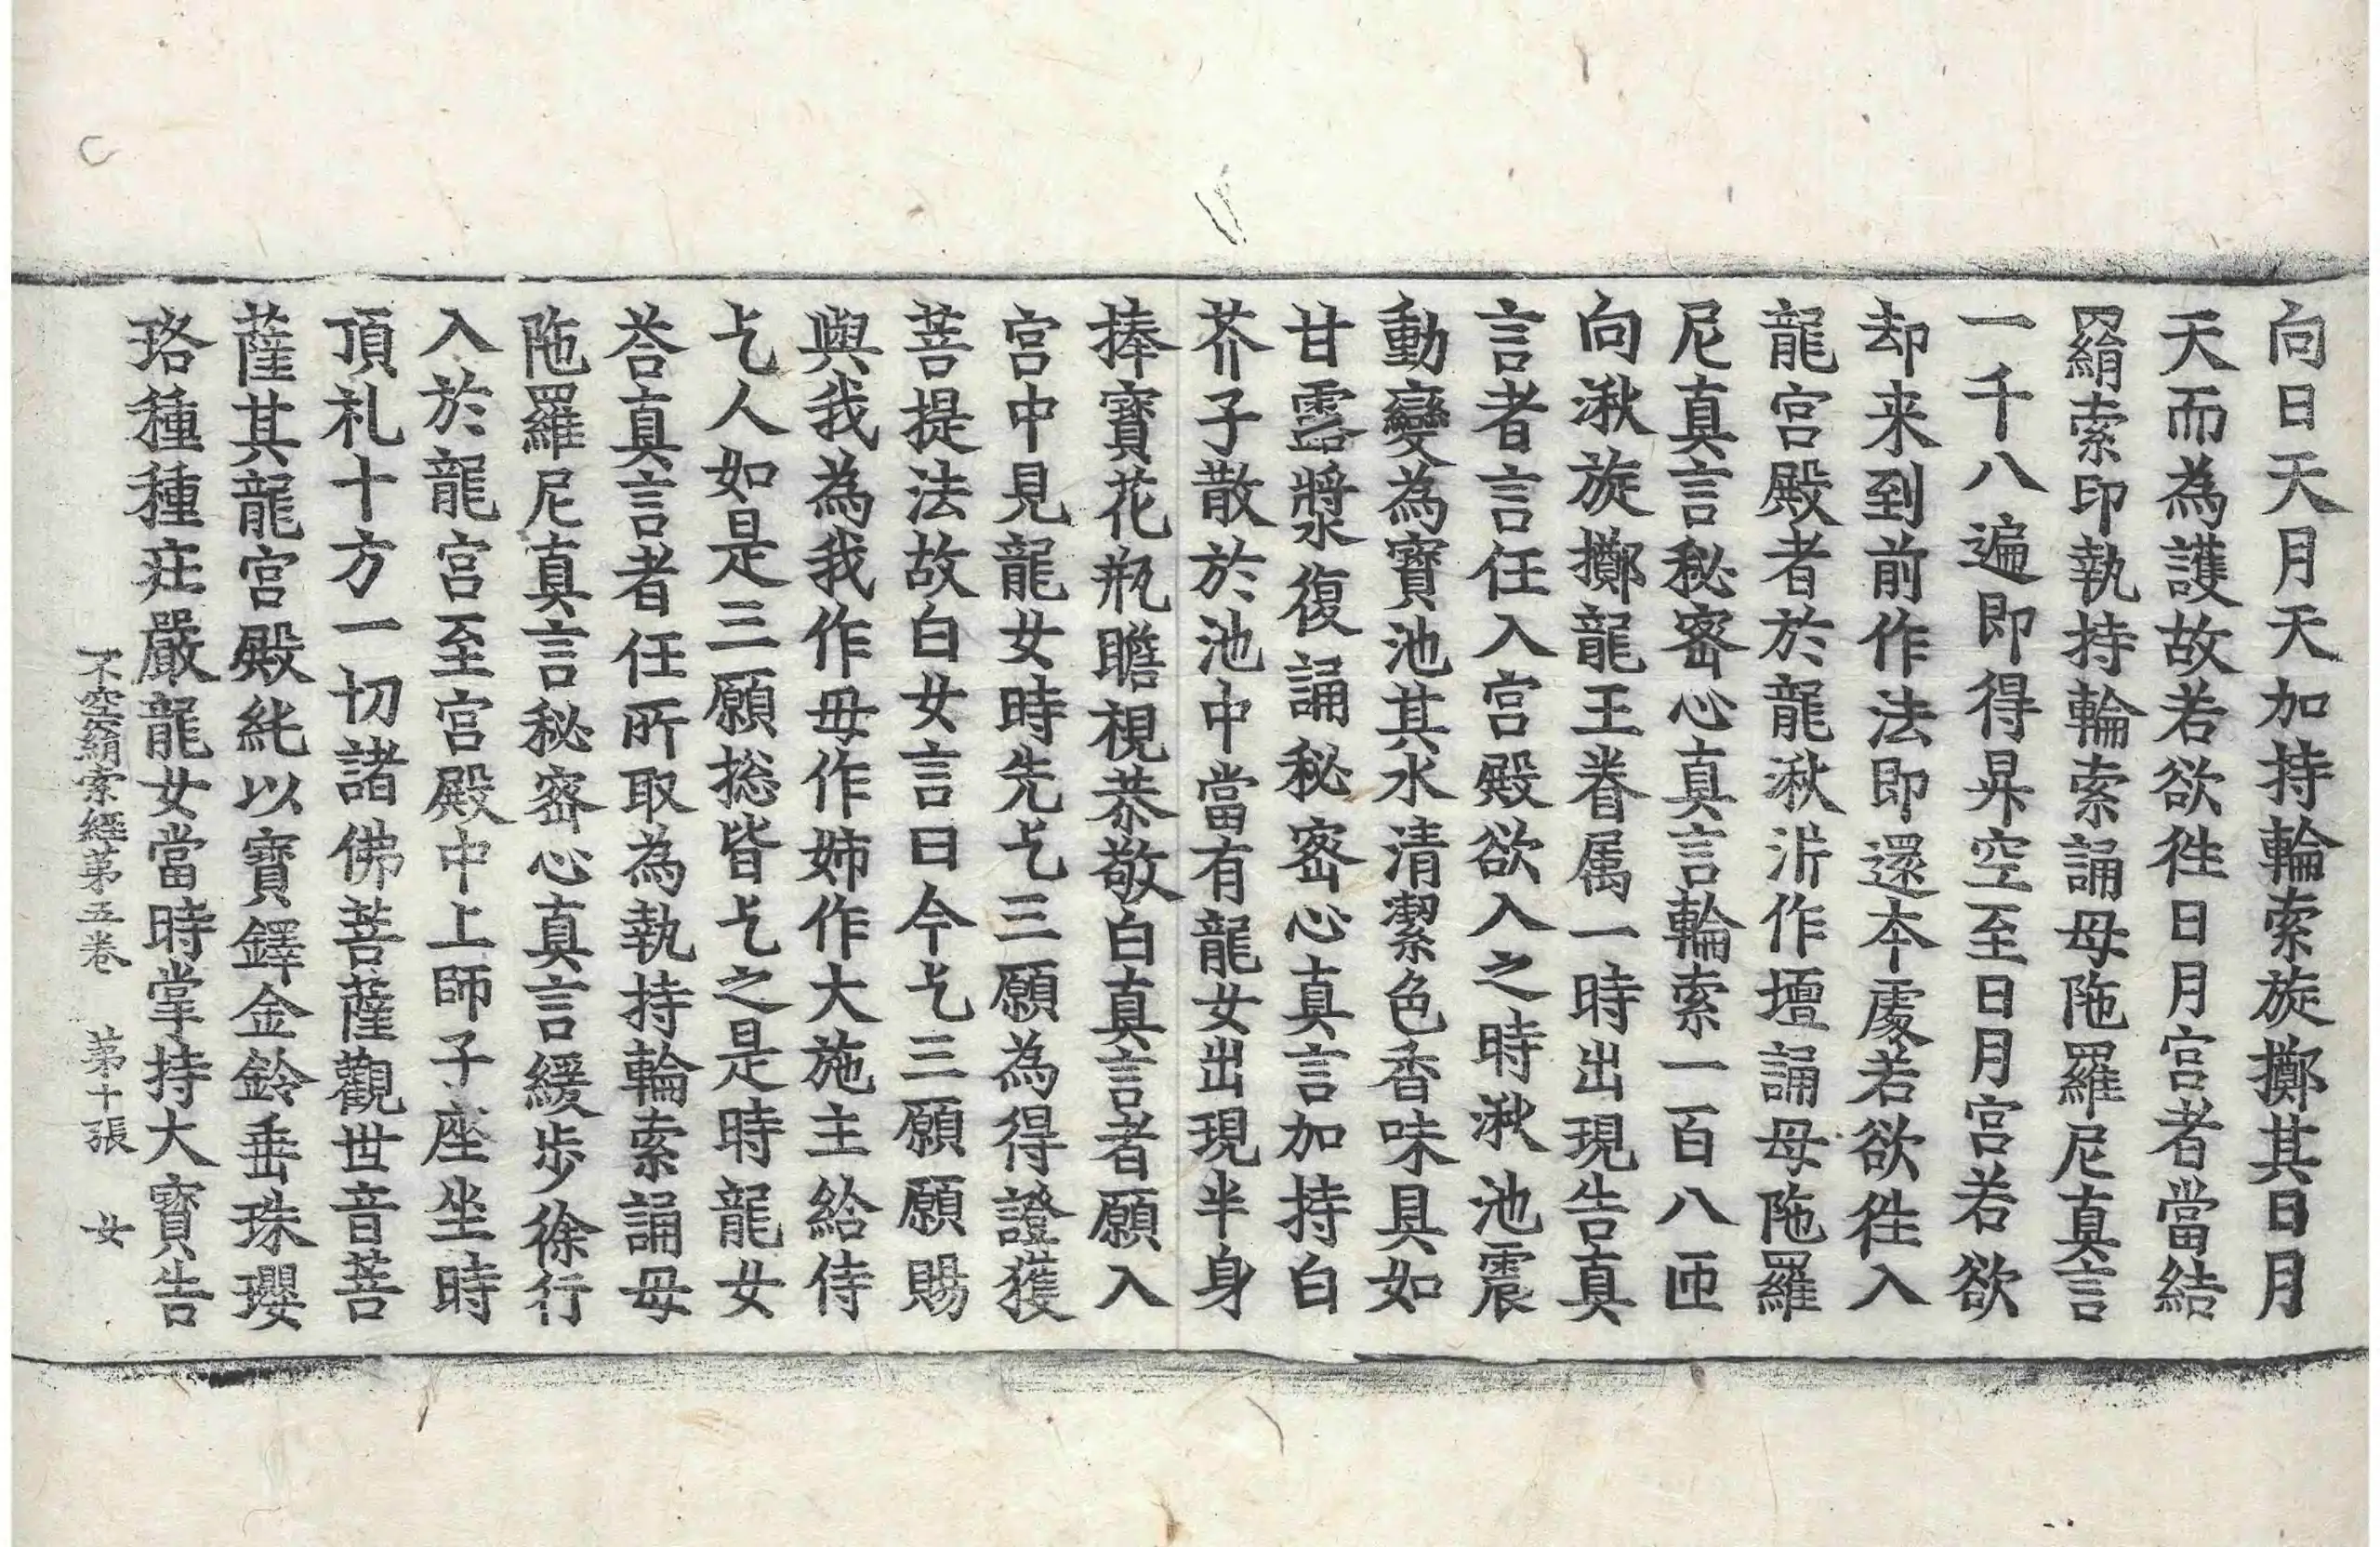 向日天月天加持輪索旋擲其日月
天而為護故若欲徃日月宮者當結
羂索印執持輪索誦母陁羅尼真言
一千八遍即得昇空至日月宮若欲
却来到前作法即還本處若欲徃入
龍宮殿者於龍湫泝作壇誦母陁羅
尼真言秘密心真言輪索一百八匝
向湫旋擲龍王眷属一時出現告真
言者言任入宮殿欲入之時湫池震
動變為寶池其水清潔色香味具如
甘露漿復誦秘密心真言加持白
芥子散於池中當有龍女出現半身
捧寶花瓶瞻視恭敬白真言者願入
宮中見龍女時先乞三願為得證獲
菩提法故白女言曰今乞三願願賜
與我為我作母作姉作大施主給侍
乞人如是三願捴皆乞之是時龍女
荅真言者任所取為執持輪索誦母
陁羅尼真言秘密心真言緩步徐行
入於龍宮至宮殿中上師子座坐時
頂礼十方一切諸佛菩薩觀世音菩
薩其龍宮殿純以寶鐸金鈴垂珠瓔
珞種種疘嚴龍女當時掌持大寶告
不空羂索經第五卷 第十張 女